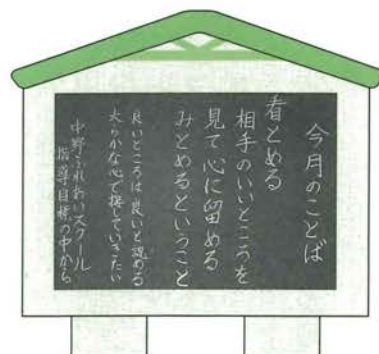 今月のことば
看とめる
相手のいいところを
見て心に留める
みとめるということ
良いところは良いと認める
大らかな心で接していきたい
中野ふれあいスクール
指導目標の中から